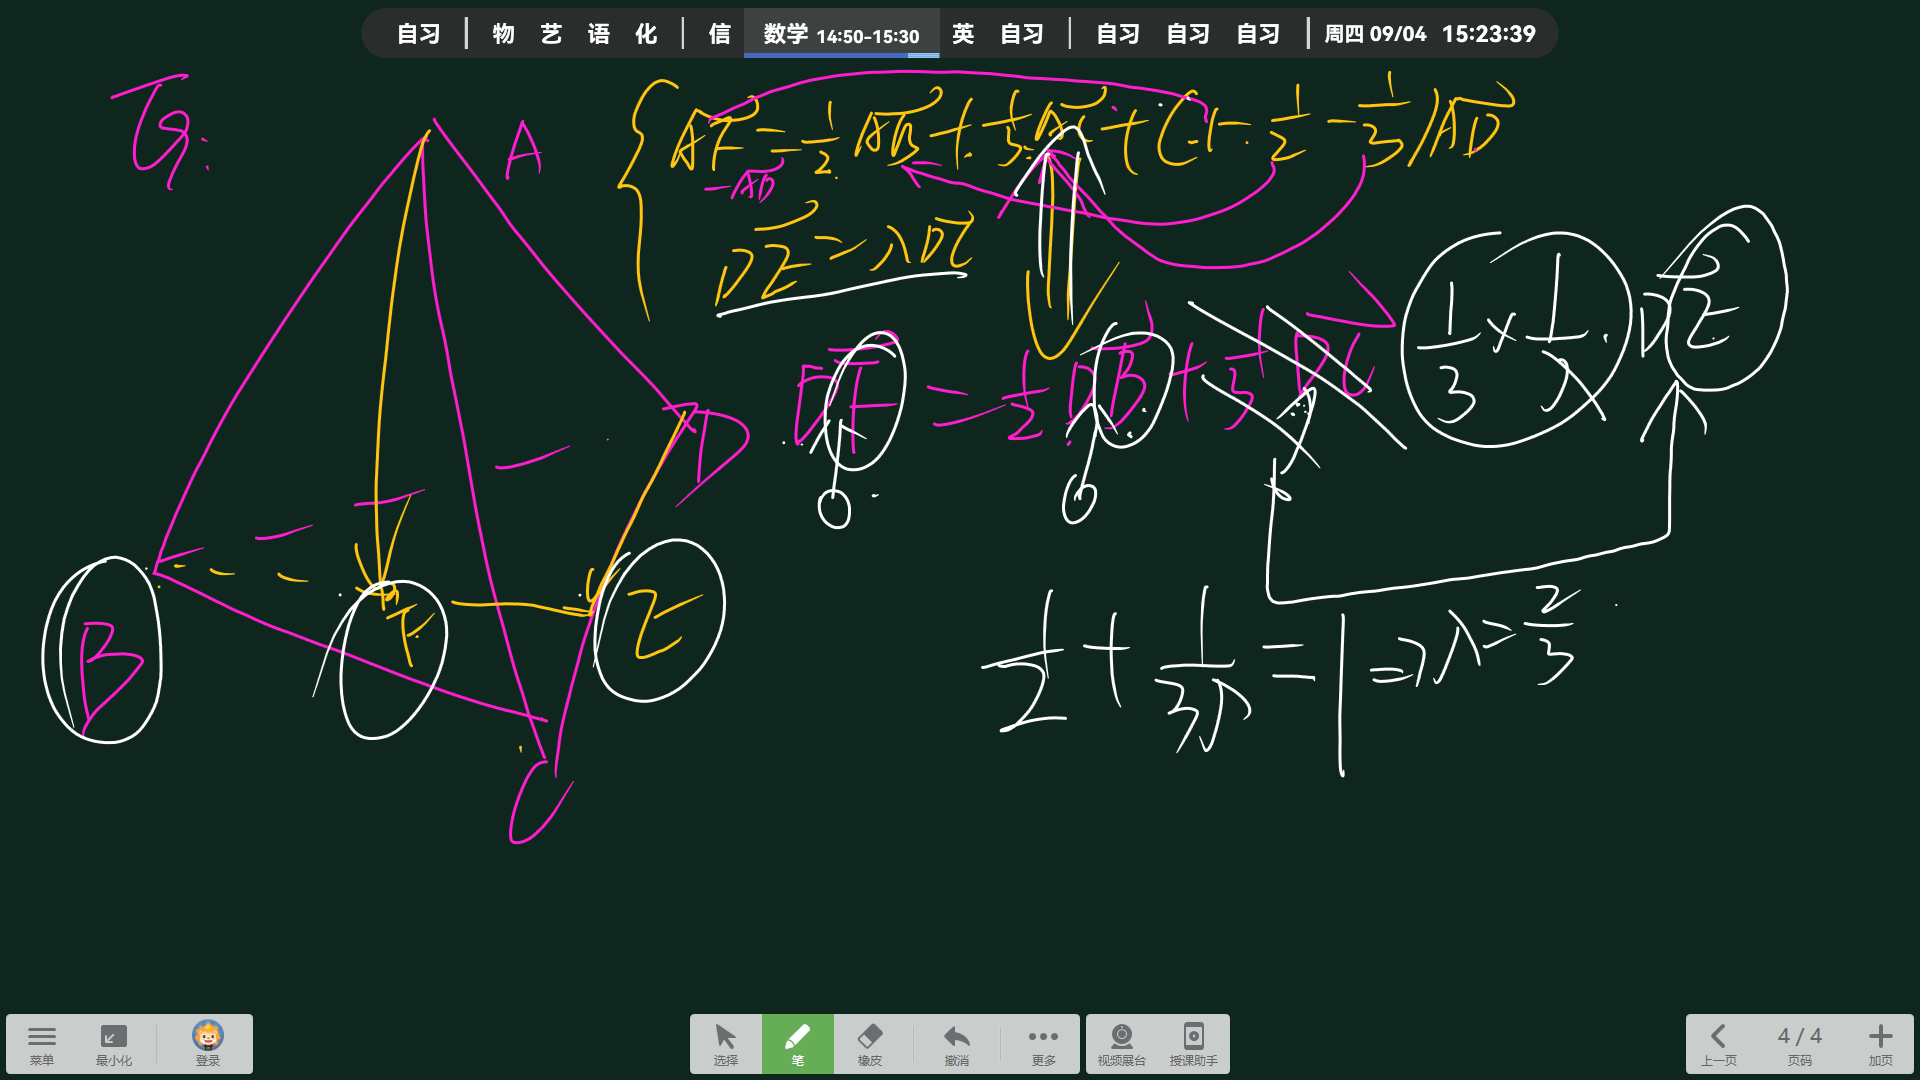 自习 | 物 艺 语 化 | 信 数学 14:50-15:30 英 自习 | 自习 自习 自习 | 周四 09/04 15:23:39
T8:
A
B
C
D
E
F
AF = 1/2 AB + 1/3 AC + (1 - 1/2 - 1/3) AD
-AD
DE = λDC
DF = 1/2 DB + 1/3 DC
1/3 × 1/λ · DE
1/2 + 1/3λ = 1 ⇒ λ = 2/3
菜单 最小化 登录
选择 笔 橡皮 撤消 更多
视频展台 授课助手
上一页 4 / 4 页码 加页